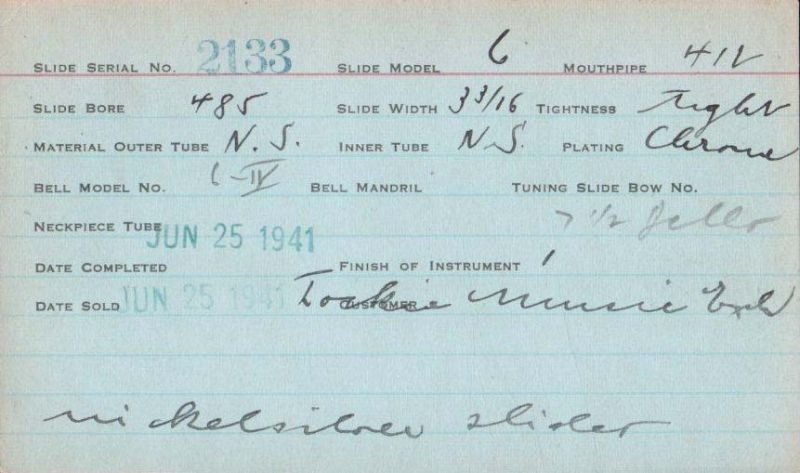 SLIDE SERIAL NO. 2133 SLIDE MODEL 6 MOUTHPIPE 41V
SLIDE BORE 485 SLIDE WIDTH 3 3/16 TIGHTNESS Tight
MATERIAL OUTER TUBE N. S. INNER TUBE N.S. PLATING Chrome
BELL MODEL NO. 6-IV BELL MANDRIL TUNING SLIDE BOW NO.
7 1/2
NECKPIECE TUBE
JUN 25 1941
DATE COMPLETED FINISH OF INSTRUMENT 1
DATE SOLD JUN 25 1941 CUSTOMER Music
nickelsilver slider